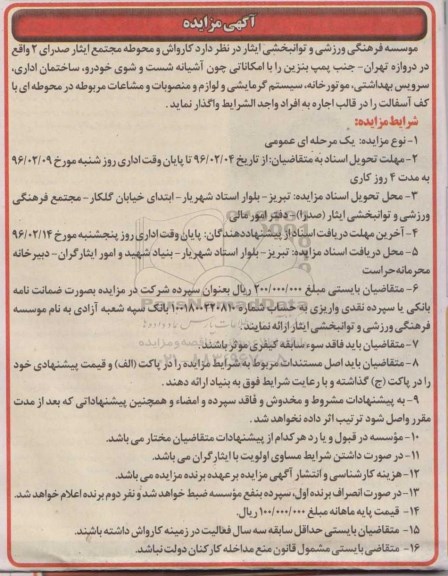 آگهی مزایده
موسسه فرهنگی ورزشی و توانبخشی ایثار در نظر دارد کارواش و محوطه مجتمع ایثار صدرای ۲ واقع
در دروازه تهران- جنب پمپ بنزین را با امکاناتی چون آشیانه شست و شوی خودرو، ساختمان اداری،
سرویس بهداشتی، موتورخانه، سیستم گرمایشی و لوازم و منصوبات و مشاعات مربوطه در محوطه ای با
کف آسفالت را در قالب اجاره به افراد واجد الشرایط واگذار نماید.
شرایط مزایده:
۱- نوع مزایده: یک مرحله ای عمومی
۲- مهلت تحویل اسناد به متقاضیان: از تاریخ ۹۶/۰۲/۰۴ تا پایان وقت اداری روز شنبه مورخ ۹۶/۰۲/۰۹
به مدت ۴ روز کاری
۳- محل تحویل اسناد مزایده: تبریز- بلوار استاد شهریار- ابتدای خیابان گلکار- مجتمع فرهنگی
ورزشی و توانبخشی ایثار (صدرا)- دفتر امور مالی
۴- آخرین مهلت دریافت اسناد از پیشنهاددهندگان: پایان وقت اداری روز پنجشنبه مورخ ۹۶/۰۲/۱۴
۵- محل دریافت اسناد مزایده: تبریز- بلوار استاد شهریار- بنیاد شهید و امور ایثارگران- دبیرخانه
محرمانه حراست
۶- متقاضیان بایستی مبلغ ۲۰۰/۰۰۰/۰۰۰ ریال بعنوان سپرده شرکت در مزایده بصورت ضمانت نامه
بانکی یا سپرده نقدی واریزی به حساب شماره بانک سپه شعبه آزادی به نام موسسه
فرهنگی ورزشی و توانبخشی ایثار ارائه نمایند.
۷- متقاضیان باید فاقد سوء سابقه کیفری موثر باشند.
۸- متقاضیان باید اصل مستندات مربوط به شرایط مزایده را در پاکت (الف) و قیمت پیشنهادی خود
را در پاکت (ج) گذاشته و با رعایت شرایط فوق به بنیاد ارائه دهند.
۹- به پیشنهادات مشروط و مخدوش و فاقد سپرده و امضاء و همچنین پیشنهاداتی که بعد از مدت
مقرر واصل شود ترتیب اثر داده نخواهد شد.
۱۰- مؤسسه در قبول و یا رد هر کدام از پیشنهادات متقاضیان مختار می باشد.
۱۱- در صورت داشتن شرایط مساوی اولویت با ایثارگران می باشد.
۱۲- هزینه کارشناسی و انتشار آگهی مزایده بر عهده برنده مزایده می باشد.
۱۳- در صورت انصراف برنده اول، سپرده بنفع مؤسسه ضبط خواهد شد و نفر دوم برنده اعلام خواهد شد.
۱۴- قیمت پایه ماهانه مبلغ ۱۰۰/۰۰۰/۰۰۰ ریال.
۱۵- متقاضیان بایستی حداقل سابقه سه سال فعالیت در زمینه کارواش داشته باشند.
۱۶- متقاضی بایستی مشمول قانون منع مداخله کارکنان دولت نباشد.